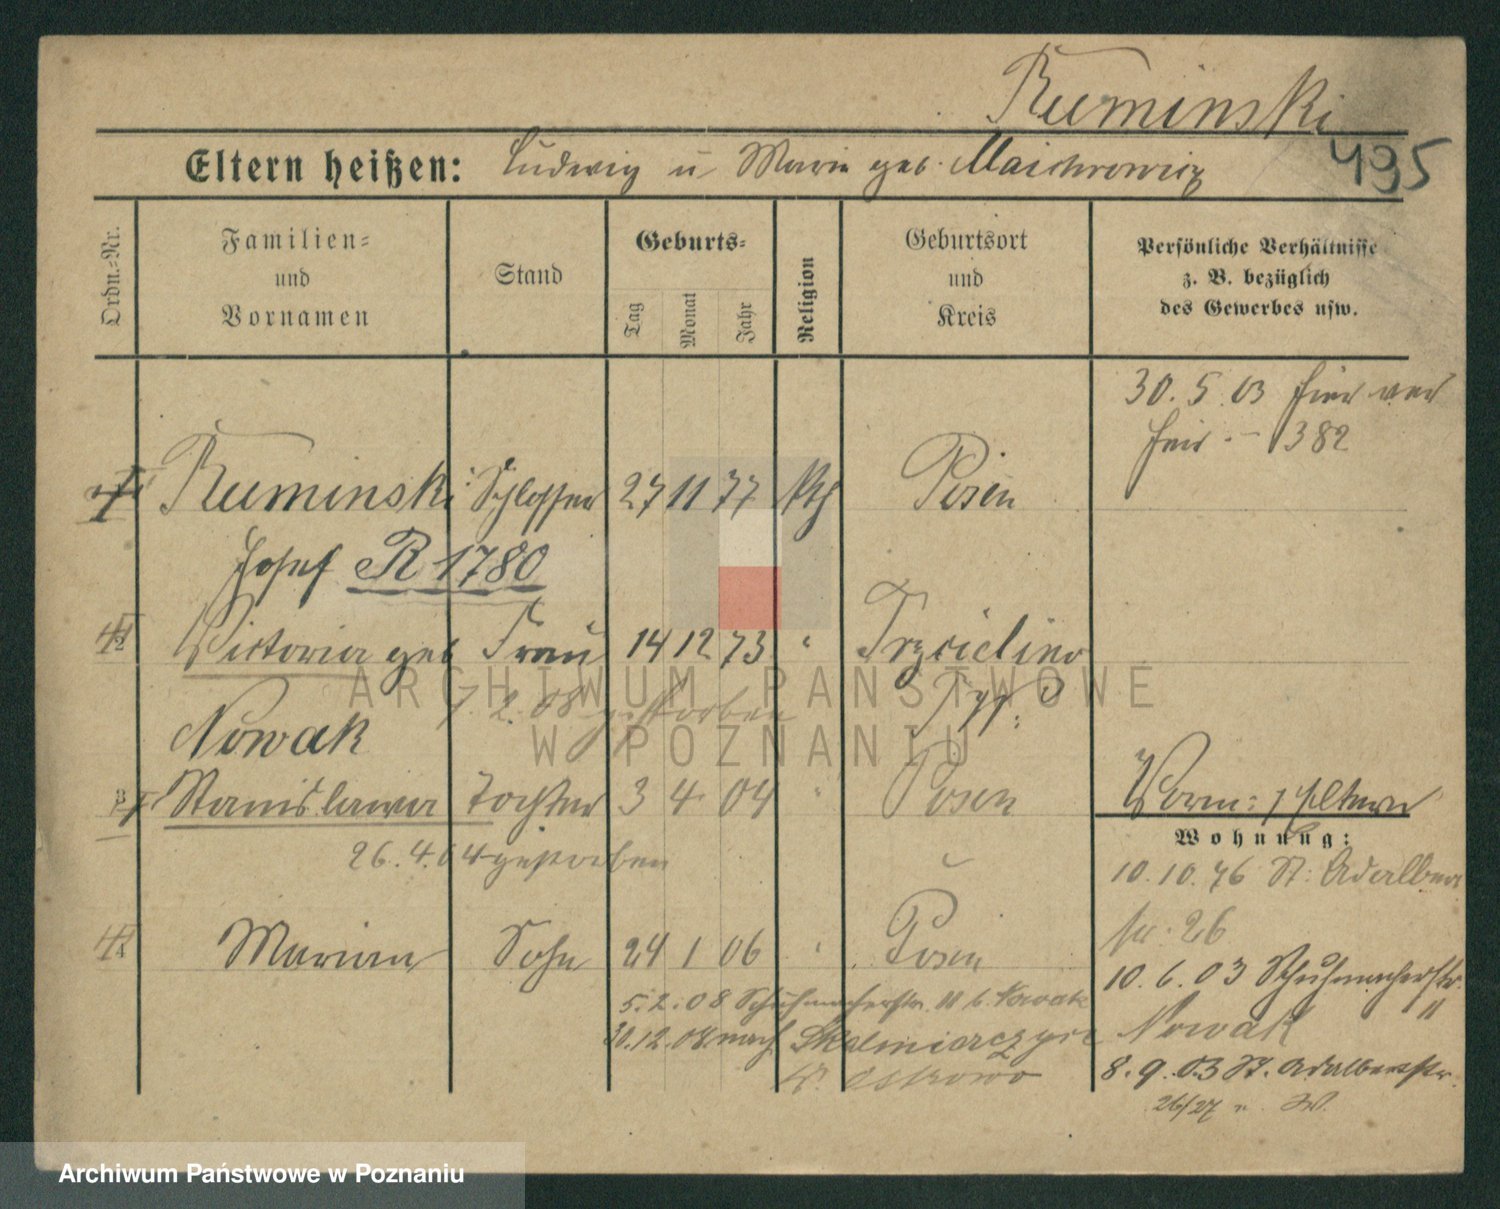 Ruminski
495
Eltern heißen: Ludwig u Marie geb. Maichrowicz
Ordn.-Nr.
Familien- und Vornamen
Stand
Geburts-
Tag Monat Jahr
Religion
Geburtsort und Kreis
Persönliche Verhältnisse z. B. bezüglich des Gewerbes usw.
30. 5. 03
382
Ruminski Schlosser 27 11 77 kth Posen
Josef R 1780
Victoria geb Frau 14 12 73 " Trzcielino
7. 2. 08 gestorben
Nowak
3 Stanislawa Tochter 3 4 04 " Posen
Vorm: Eltern
Wohnung:
26. 4. 04 gestorben
10. 10. 76 St: Adalbert
26
4 Marian Sohn 24 1 06 " Posen
10. 6. 03 Schuhmacherstr. 11
5. 2. 08 Schuhmacherstr. 11 b. Nowak
Nowak
30. 12. 08 nach Skalmierczyce
8. 9. 03 St. Adalbertstr.
Ostrowo
26/27
ARCHIWUM PAŃSTWOWE
W POZNANIU
Archiwum Państwowe w Poznaniu